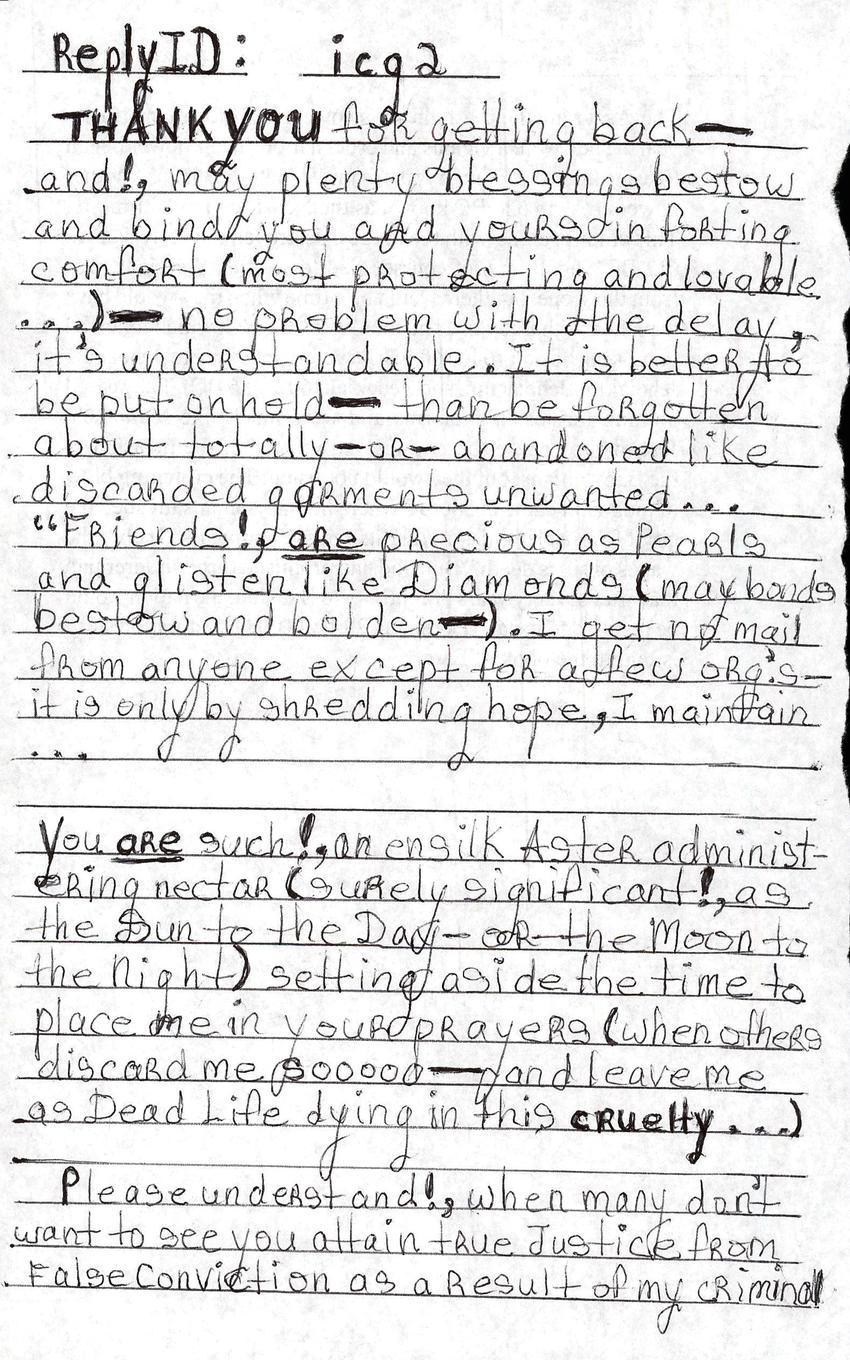 ReplyID: icg2
THANK YOU for getting back—
and!, may plenty blessings bestow
and bind you and yours in forting
comfort (most protecting and lovable
...)— no problem with the delay,
it's understandable. It is better to
be put on hold— than be forgotten
about totally—or— abandoned like
discarded garments unwanted...
“Friends!, are precious as Pearls
and glisten like Diamonds (may bonds
bestow and bolden—). I get no mail
from anyone except for a few org.'s—
it is only by shredding hope, I maintain
...
You are such!, an ensilk Aster administ-
ering nectar (surely significant!, as
the Sun to the Day—or—the Moon to
the Night) setting aside the time to
place me in your prayers (when others
discard me sooooo—and leave me
as Dead Life dying in this cruelty...)
Please understand!, when many don't
want to see you attain true Justice from
False Conviction as a Result of my criminal